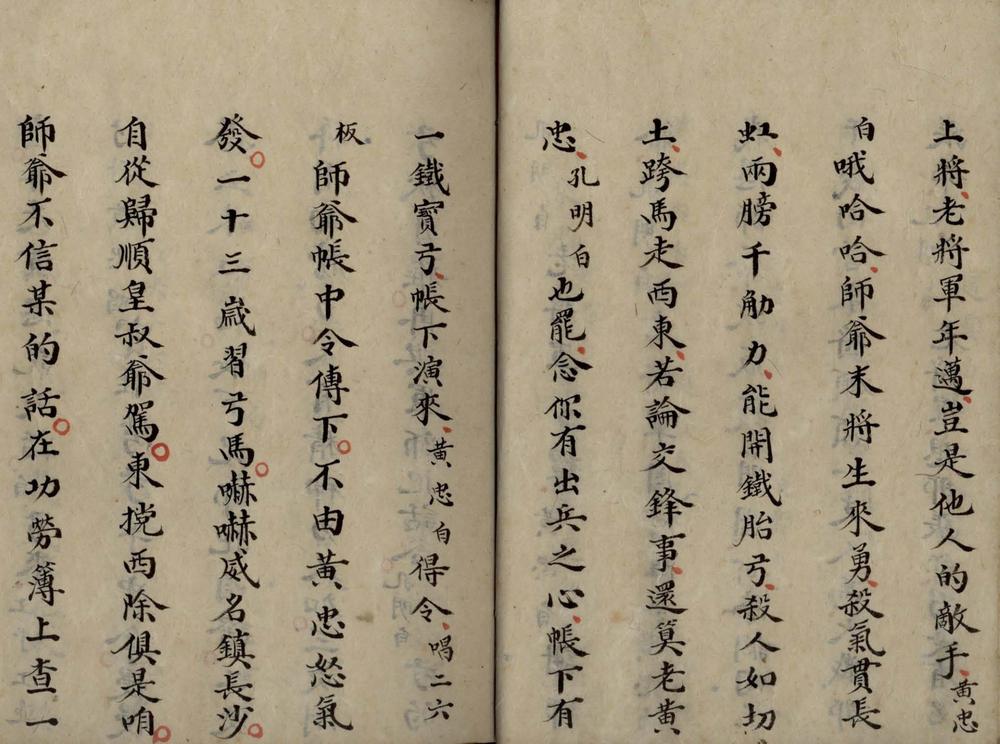 上將、老將軍年邁、豈是他人的敵手、黃忠
白哦哈哈、師爺末將生來勇、殺氣貫長
虹、兩膀千觔力、能開鐵胎弓、殺人如切
土、跨馬走西東、若論交鋒事、還算老黃
忠、孔明白也罷、念你有出兵之心、帳下有
一鐵寶弓、帳下演來、黃忠白得令、唱二六
板師爺帳中令傳下。不由黃忠怒氣
發。一十三歲習弓馬。嚇嚇威名鎮長沙。
自從歸順皇叔爺駕。東擋西除俱是咱。
師爺不信某的話。在功勞簿上查一